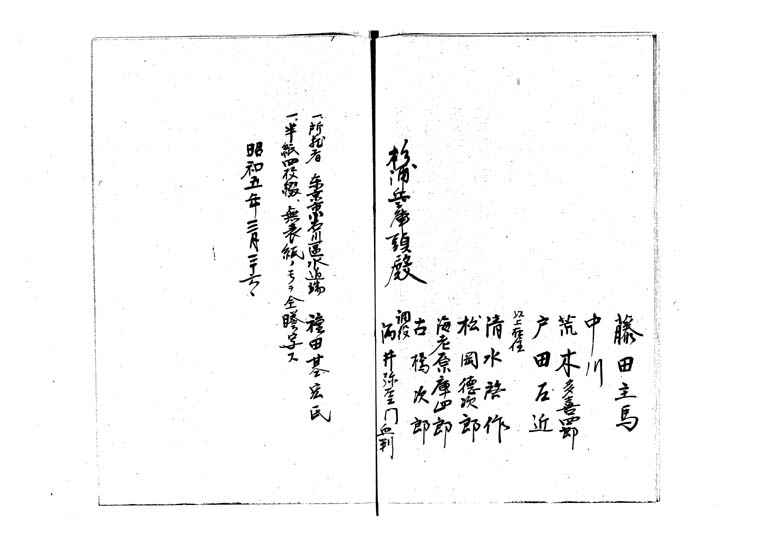 藤田主馬
中川
荒木多喜四郎
戸田左近
以上在住
清水啓作
松岡德次郎
海老原庫四郎
古橋次郎
調役
酒井弥左エ門血判
杉浦兵庫頭殿
一、所蔵者 東京市小石川區水道端 種田基宏氏
一、半紙四枚綴、無表紙ノモノヲ全謄写ス
昭和五年三月三十